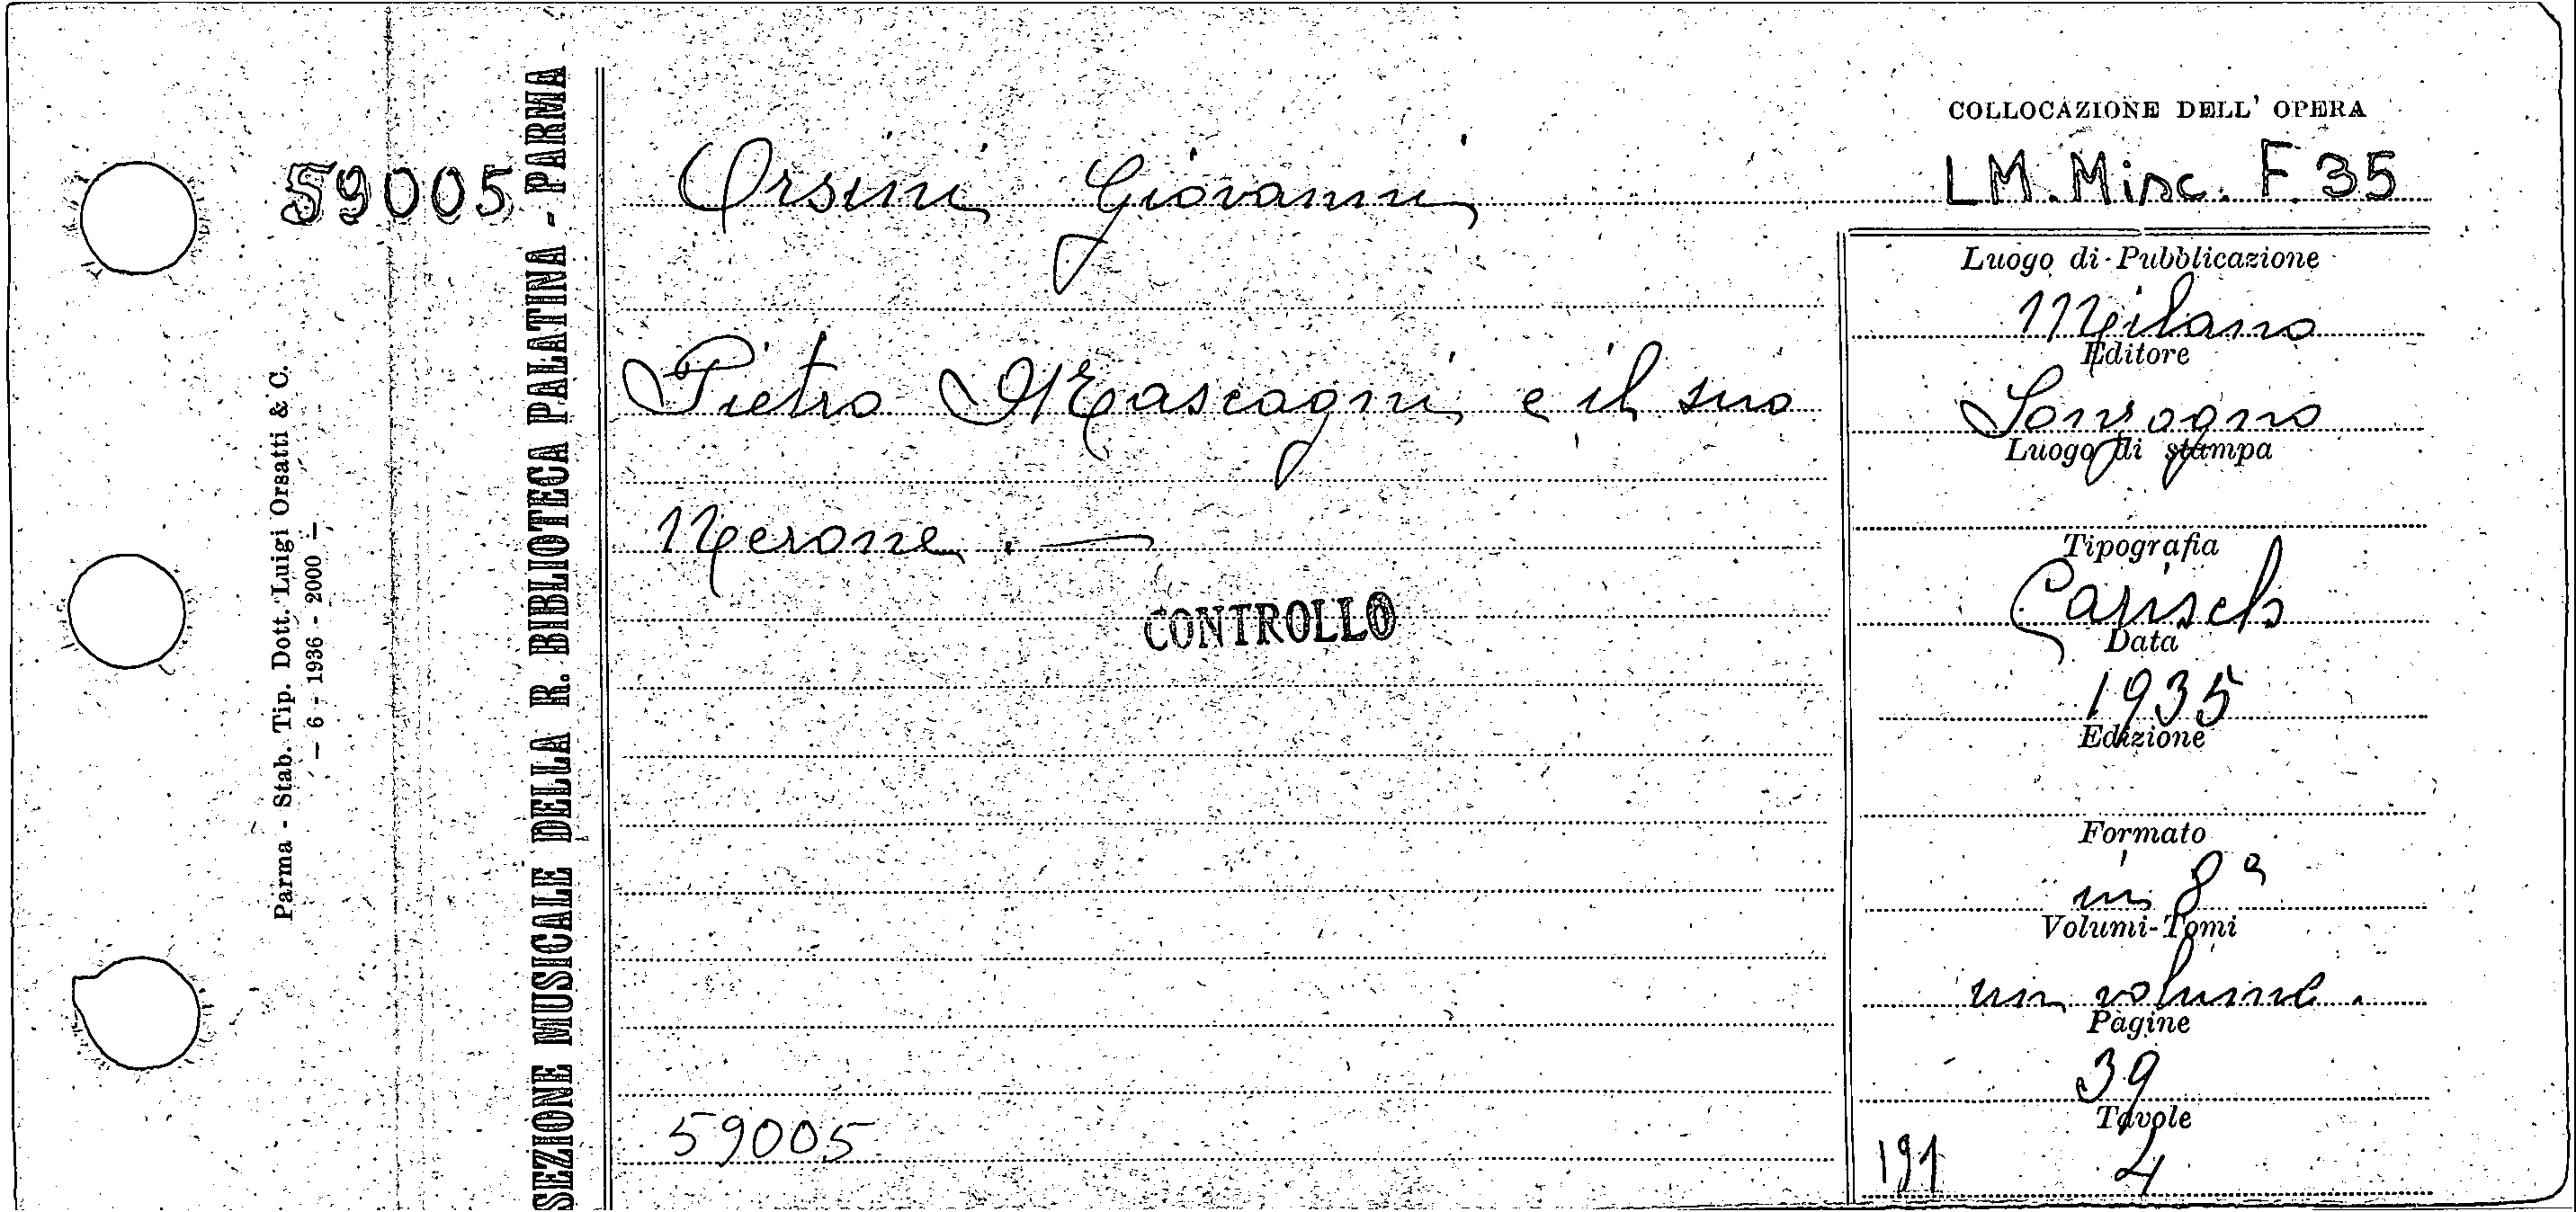 59005
Parma - Stab. Tip. Dott. Luigi Orsatti & C.
— 6 - 1936 - 2000 —
SEZIONE MUSICALE DELLA R. BIBLIOTECA PALATINA - PARMA
Orsini Giovanni
Pietro Mascagni e il suo
Nerone. —
CONTROLLO
59005
COLLOCAZIONE DELL' OPERA
LM. Misc. F. 35
Luogo di Pubblicazione
Milano
Editore
Sonzogno
Luogo di stampa
Tipografia
Carisch
Data
1935
Edizione
Formato
in 8º
Volumi-Tomi
un volume.
Pagine
39
Tavole
191 4